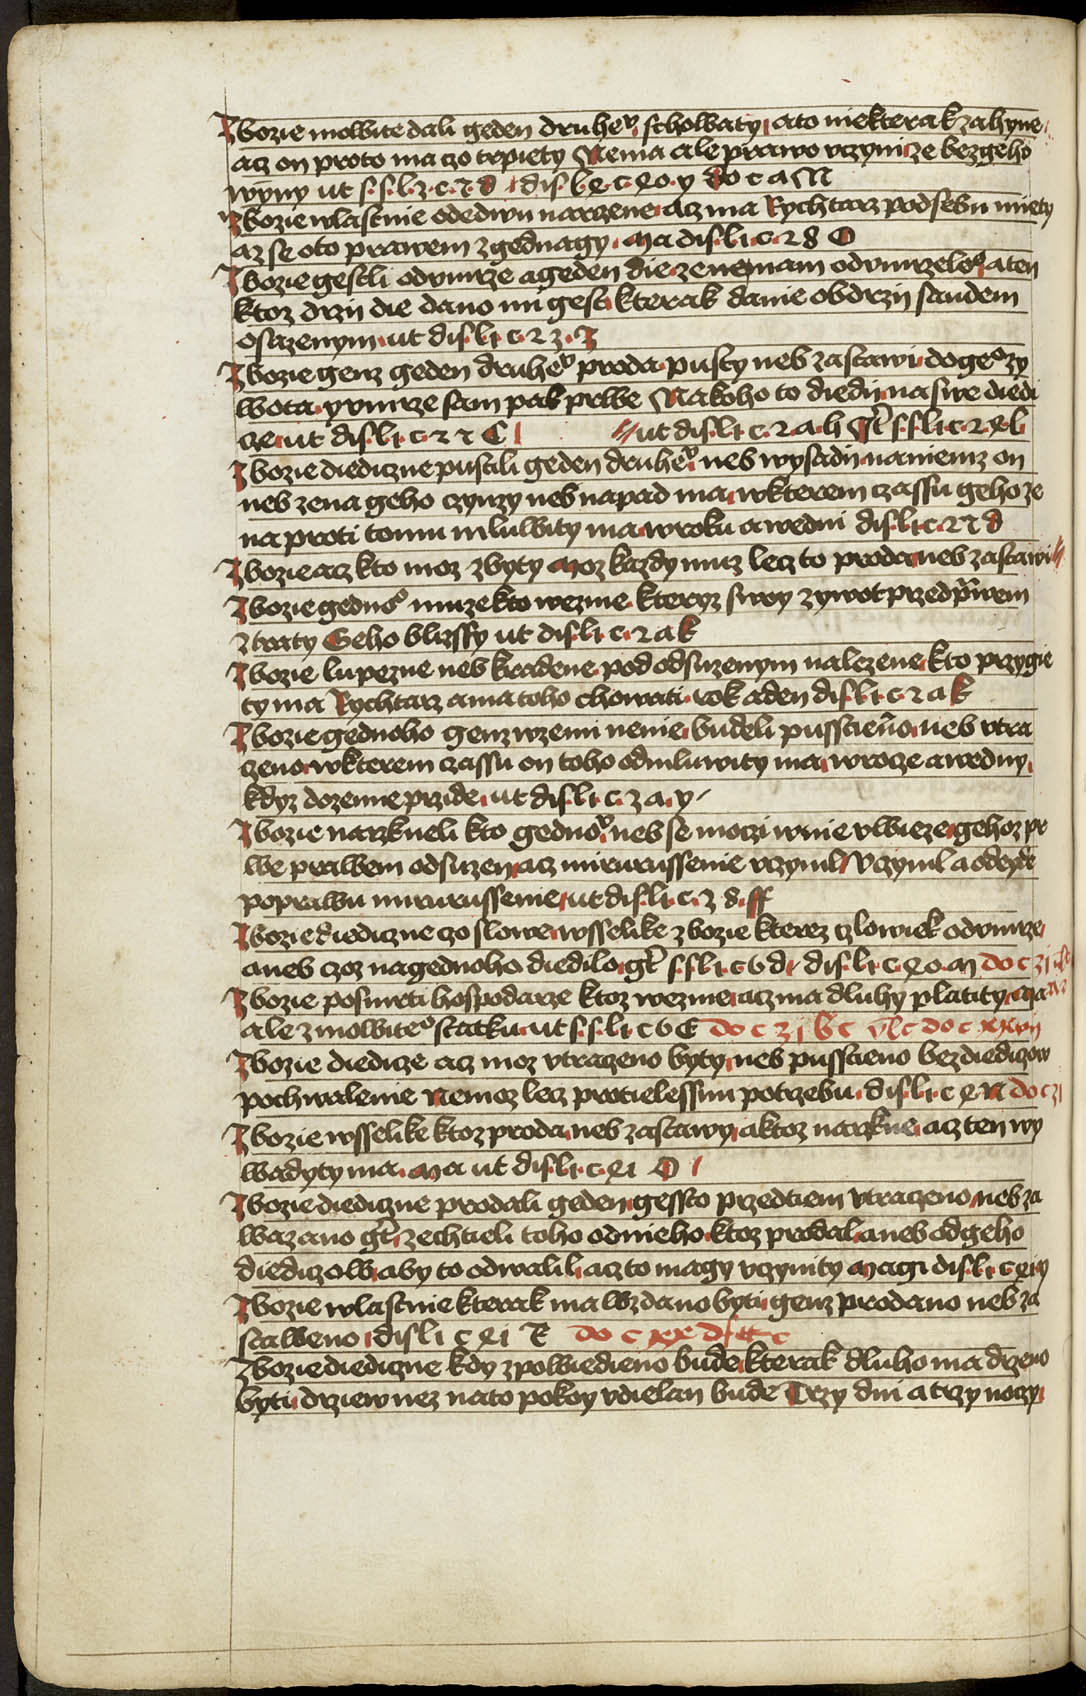 Zbozie mowite dali geden druheᵒ schowaty ato niekterak zahyne
acz on proto ma czo trpiety Nema ale prawo vczyni ze bez geho
wyny ut s. s. l. z. c. z. d dis l. e. c. e o. y do c a M
Zbozie wlastnie odedwu narczene acz ma Rychtarz pod sebu miety
az se oto prawem zgednagy. Ma dis. l. i. c. 2 8 O
Zbozie gestli odumrze ageden die ze nemam odumrzeloᵒ aten
ktoz drzij die dano mi gest kterak danie obdrzij saudem
osazenym ut dis. l. i. c. 2 z. Z
Zbozie genz geden druheᵒ proda pusty neb zastawi do geᵒ zy
wota. y vmrze sam pak prwe Na koho to diedij na swe diedi
cze ut dis. l. i. c. 2 z C ut dis. l. i. c. 2 a. h
Zbozie diediczne pustili geden druheᵒ neb wysadij namiemz on
neb zena geho czynzy neb napad ma wkterem czassu geho ze
na proti tomu mluwity ma wroku a wedni dis. l. i. c. 2 z d
Zbozie acz kto moz zbyty Moz kazdy muz lecz to proda neb zastawi
Zbozie gednoᵒ muze kto wezme kteryz swoy zywot przed p̄wem
ztraty Geho blizssy ut dis. l. i. c. 2 a k
Zbozie lupezne neb kradene pod odsuzenym nalezene kto przygie
ty ma Rychtarz a ma toho chowati rok a den dis. l. i. c. 2 a k
Zbozie gednoho genz wzemi nenie budeli pusscieno neb vtra
czeno wkterem czassu on toho odmluwity ma wrocze a wedny
kdyz dozemie przide ut dis. l. i. c. z a. y
Zbozie narzkneli kto gednoᵒ neb se moczi wnie vwieze gehoz pr
we prawem odsuzen acz miru russenie vczynil Vczynil a odeyde
poprawu miru russenie ut dis. l. i. c. z 8. ff
Zbozie diediczne czo slowe wsselike zbozie kterez czlowiek odumrze
aneb czoz na gednoho diedilo s. s. l. i. c 6 d dis. l. i. c. e o. m do c z i
Zbozie po smrti hospodarze ktoz wezme acz ma dluhy platity Ma
ale zmowiteᵒ statku ut s. s. l. i. c 6 E do c z i b c vl c do c xxvij
Zbozie diedicze acz moz vtraczeno byty neb pusscieno bez diediczow
pochwalenie Nemoz lecz protielessnu potrzebu dis. l. i. c e N do c z i
Zbozie wsselike ktoz proda neb zastawy aktoz narzkne acz ten wy
wadyty ma. Ma ut dis. l. i. c. e i O
Zbozie diediczne prodali geden gessto przedtiem vtraczeno neb za
wazano zechtieli toho odnieho ktoz prodal aneb od geho
diediczow aby to odwalil acz to magy vczynity Magi dis. l. i. c e i y
Zbozie wlastnie kterak ma wzdano byti genz prodano neb za
staweno dis l i c e i R do c xx d
Zbozie diediczne kdy zpowiedieno bude kterak dluho ma drzeno
byti drziew nez na to pokoy vdielan bude Trzy dni a trzy noczy